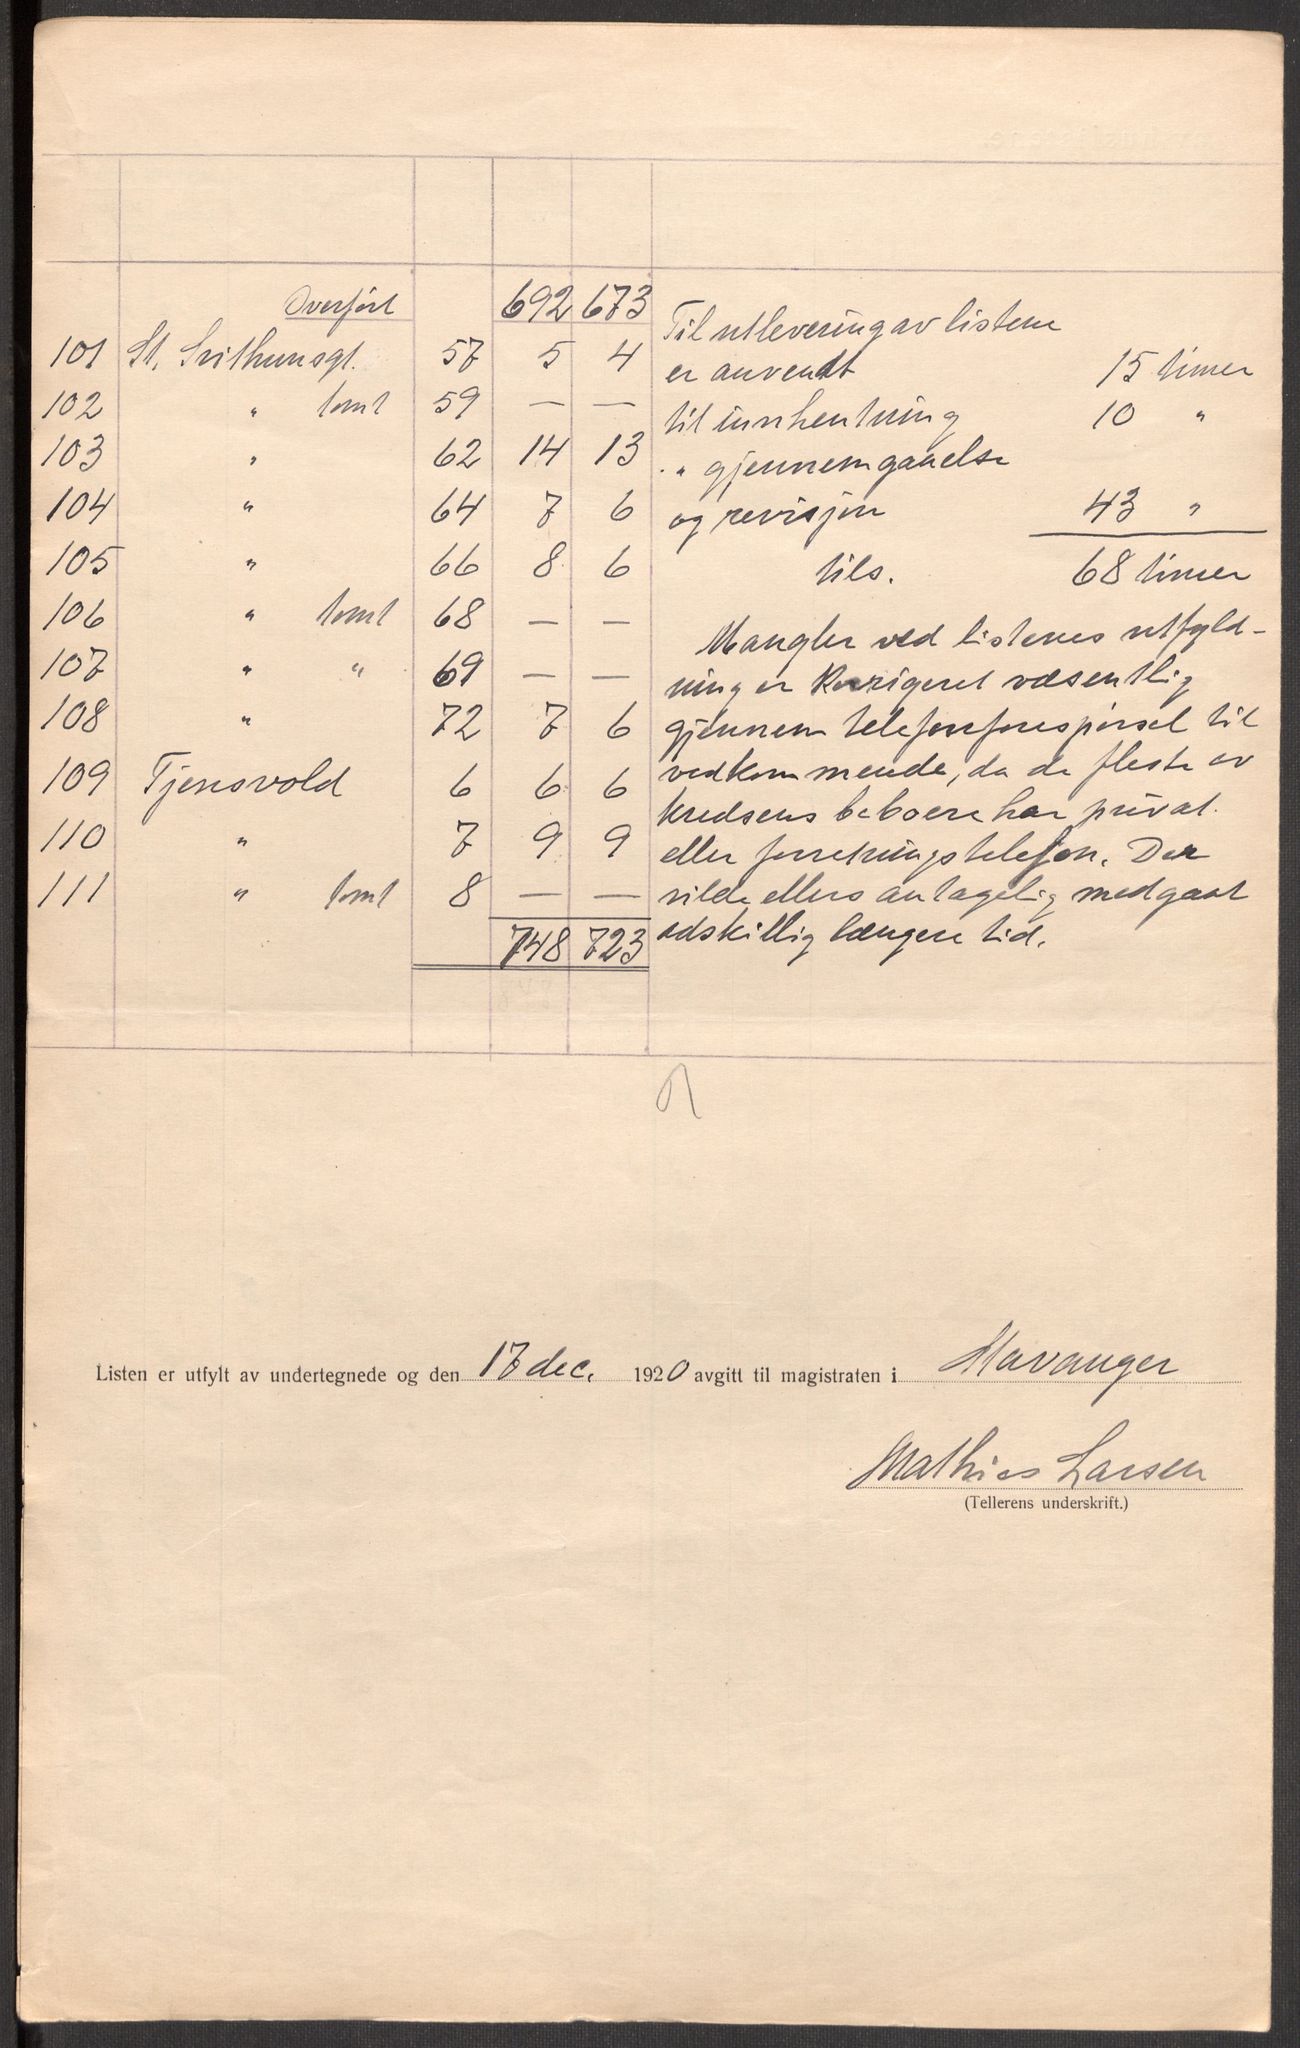 Overført 692 673
101 St. Svithunsgt. 57 5 4
102 " tomt 59 — —
103 " 62 14 13
104 " 64 7 6
105 " 66 8 6
106 " tomt 68 — —
107 " " 69 — —
108 " 72 7 6
109 Tjensvold 6 6 6
110 " 7 9 9
111 " tomt 8 — —
748 723
Til utlevering av listene
er anvendt 15 timer
til innhentning 10 "
" gjennemgaaelse
og revisjon 43 "
tils. 68 timer
Mangler ved listenes utfyld-
ning er korrigeret væsentlig
gjennem telefonforespørsel til
vedkommende, da de fleste av
kredsens beboere har privat
eller forretningstelefon. Der
vilde ellers antagelig medgaat
adskillig længere tid.
Listen er utfylt av undertegnede og den 17 dec. 1920 avgitt til magistraten i Stavanger
Mathias Larsen
(Tellerens underskrift.)